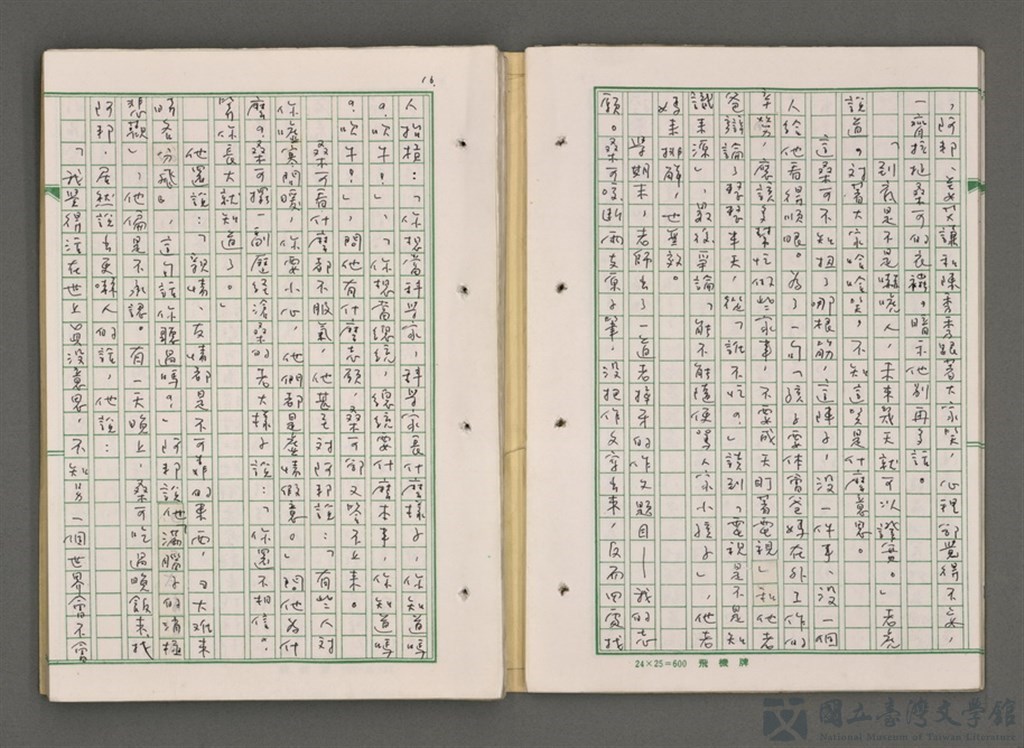 ，阿邦、美艾讓和陳秀秀跟著大家笑，心裡卻覺得不妥，
一齊拉扯桑可的衣襬。暗示他別再多話。
「到底是不是嚇唬人，未來幾天就可以證實。」老虎
說道。對著大家哈哈笑，不知這笑是什麼意思。
這桑可不知扭了哪根筋，這陣子，沒一件事、沒一個
人給他看得順眼。為了一句「孩子要体會爸媽在外工作的
辛勞，應該多幫忙做些家事，不要成天盯著電視」和他老
爸辯論了整整半天，從「誰不吃。」談到「電視是不是知
識來源」，最後爭論「能不能隨便罵人家小孩子」，他老
媽來排解，也無效。
學期末，老師出了一道老掉牙的作文題目——我的志
願。桑可咬斷兩支原子筆，沒把作文寫出來，反而四處找
16.
人抬槓：「你想當科學家，科學家長什麼樣子，你知道嗎
？吹牛！」、「你想當總統，總統要什麼本事，你知道嗎
？吹牛！」，問他有什麼志願，桑可卻又答不上來。
桑可看什麼都不服氣，他甚至對阿邦說：「有些人對
你噓寒問暖，你要小心，他們都是虛情假意。」問他為什
麼？桑可擺一副歷經滄桑的老大樣子說：「你還不相信。
等你長大就知道了。」
他還說：「親情、友情都是不可靠的東西，『大難來
時各份飛』，這句話你聽過嗎？」阿邦說他「滿腦子的消極
悲觀」，他偏是不承認。有一天晚上，桑可吃過晚飯來找
阿邦，居然說出更嚇人的話，他說：
「我覺得活在世上真沒意思，不知另一個世界會不會
24×25=600 飛機牌
國立臺灣文學館
National Museum of Taiwan Literature